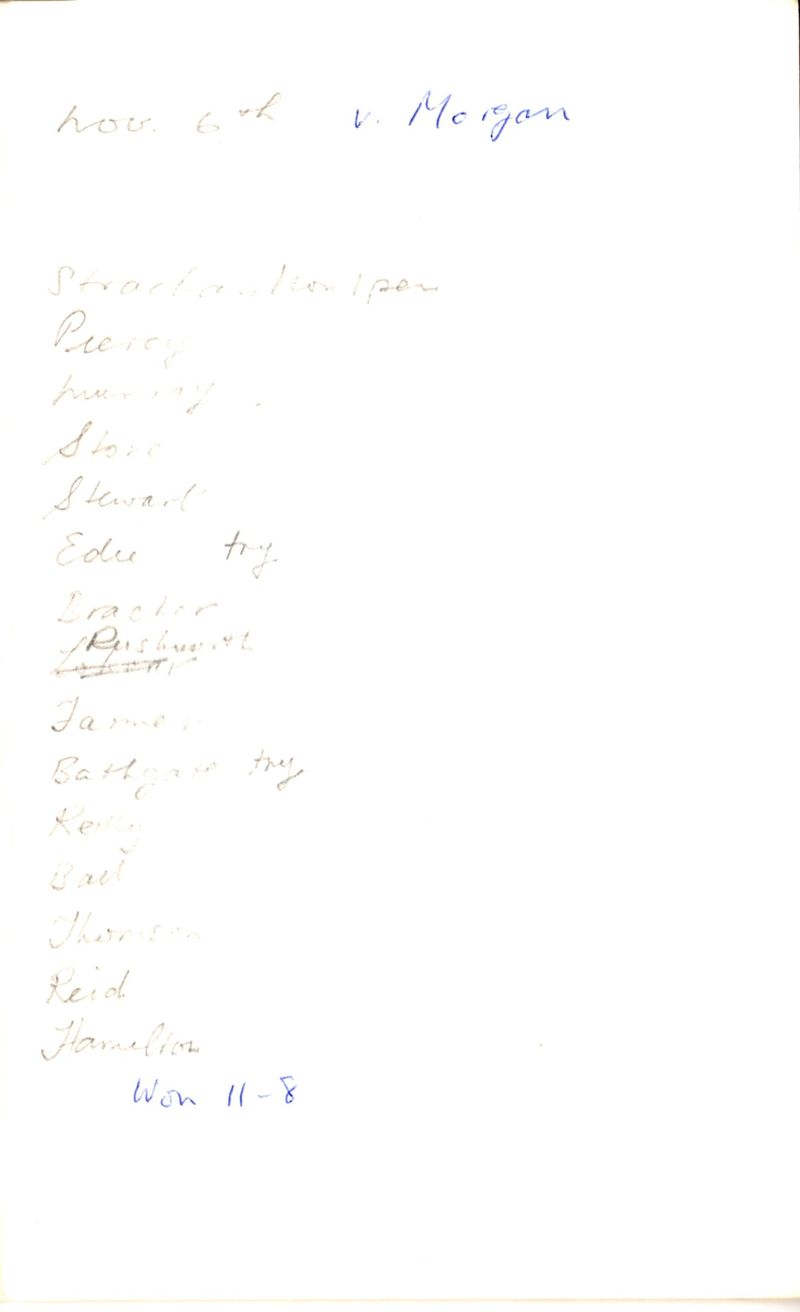 Nov. 6th v. Morgan
Strachan 1con 1pen
Piercy
Murray
Stone
Stewart
Edie try
Rushworth
Farmer
Bathgate try
Reilly
Bail
Thomson
Reid
Hamilton
Won 11-8